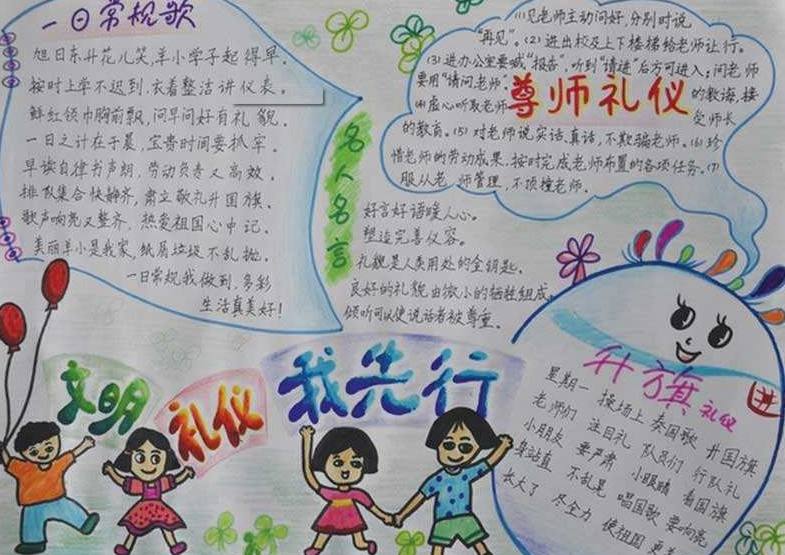 一日常规歌
旭日东升花儿笑,羊小学子起得早。
按时上学不迟到,衣着整洁讲仪表。
鲜红领巾胸前飘,问早问好有礼貌。
一日之计在于晨,宝贵时间要抓牢。
早读自律书声朗,劳动负责又高效。
排队集合快静齐,肃立敬礼升国旗。
歌声响亮又整齐,热爱祖国心中记。
美丽羊小是我家,纸屑垃圾不乱抛。
一日常规我做到,多彩
生活真美好!
名人名言
好言好语暖人心。
塑造完善仪容。
礼貌是人类用处的金钥匙。
良好的礼貌由微小的牺牲组成。
倾听可以使说话者被尊重。
(1)见老师主动问好,分别时说
“再见”。(2)进出校及上下楼梯给老师让行。
(3)进办公室要喊“报告”,听到“请进”后方可进入;问老师
要用“请问老师”
尊师礼仪
(4)虚心听取老师的教诲,接
受师长
的教育。(5)对老师说实话、真话,不欺骗老师。(6)珍
惜老师的劳动成果,按时完成老师布置的各项任务。(7)
服从老师管理,不顶撞老师。
文明礼仪我先行
升旗礼仪
星期一 操场上 奏国歌 升国旗
老师们 注目礼 队员们 行队礼
小朋友 要严肃 小眼睛 看国旗
身站直 不乱晃 唱国歌 要响亮
长大了 尽全力 使祖国 更